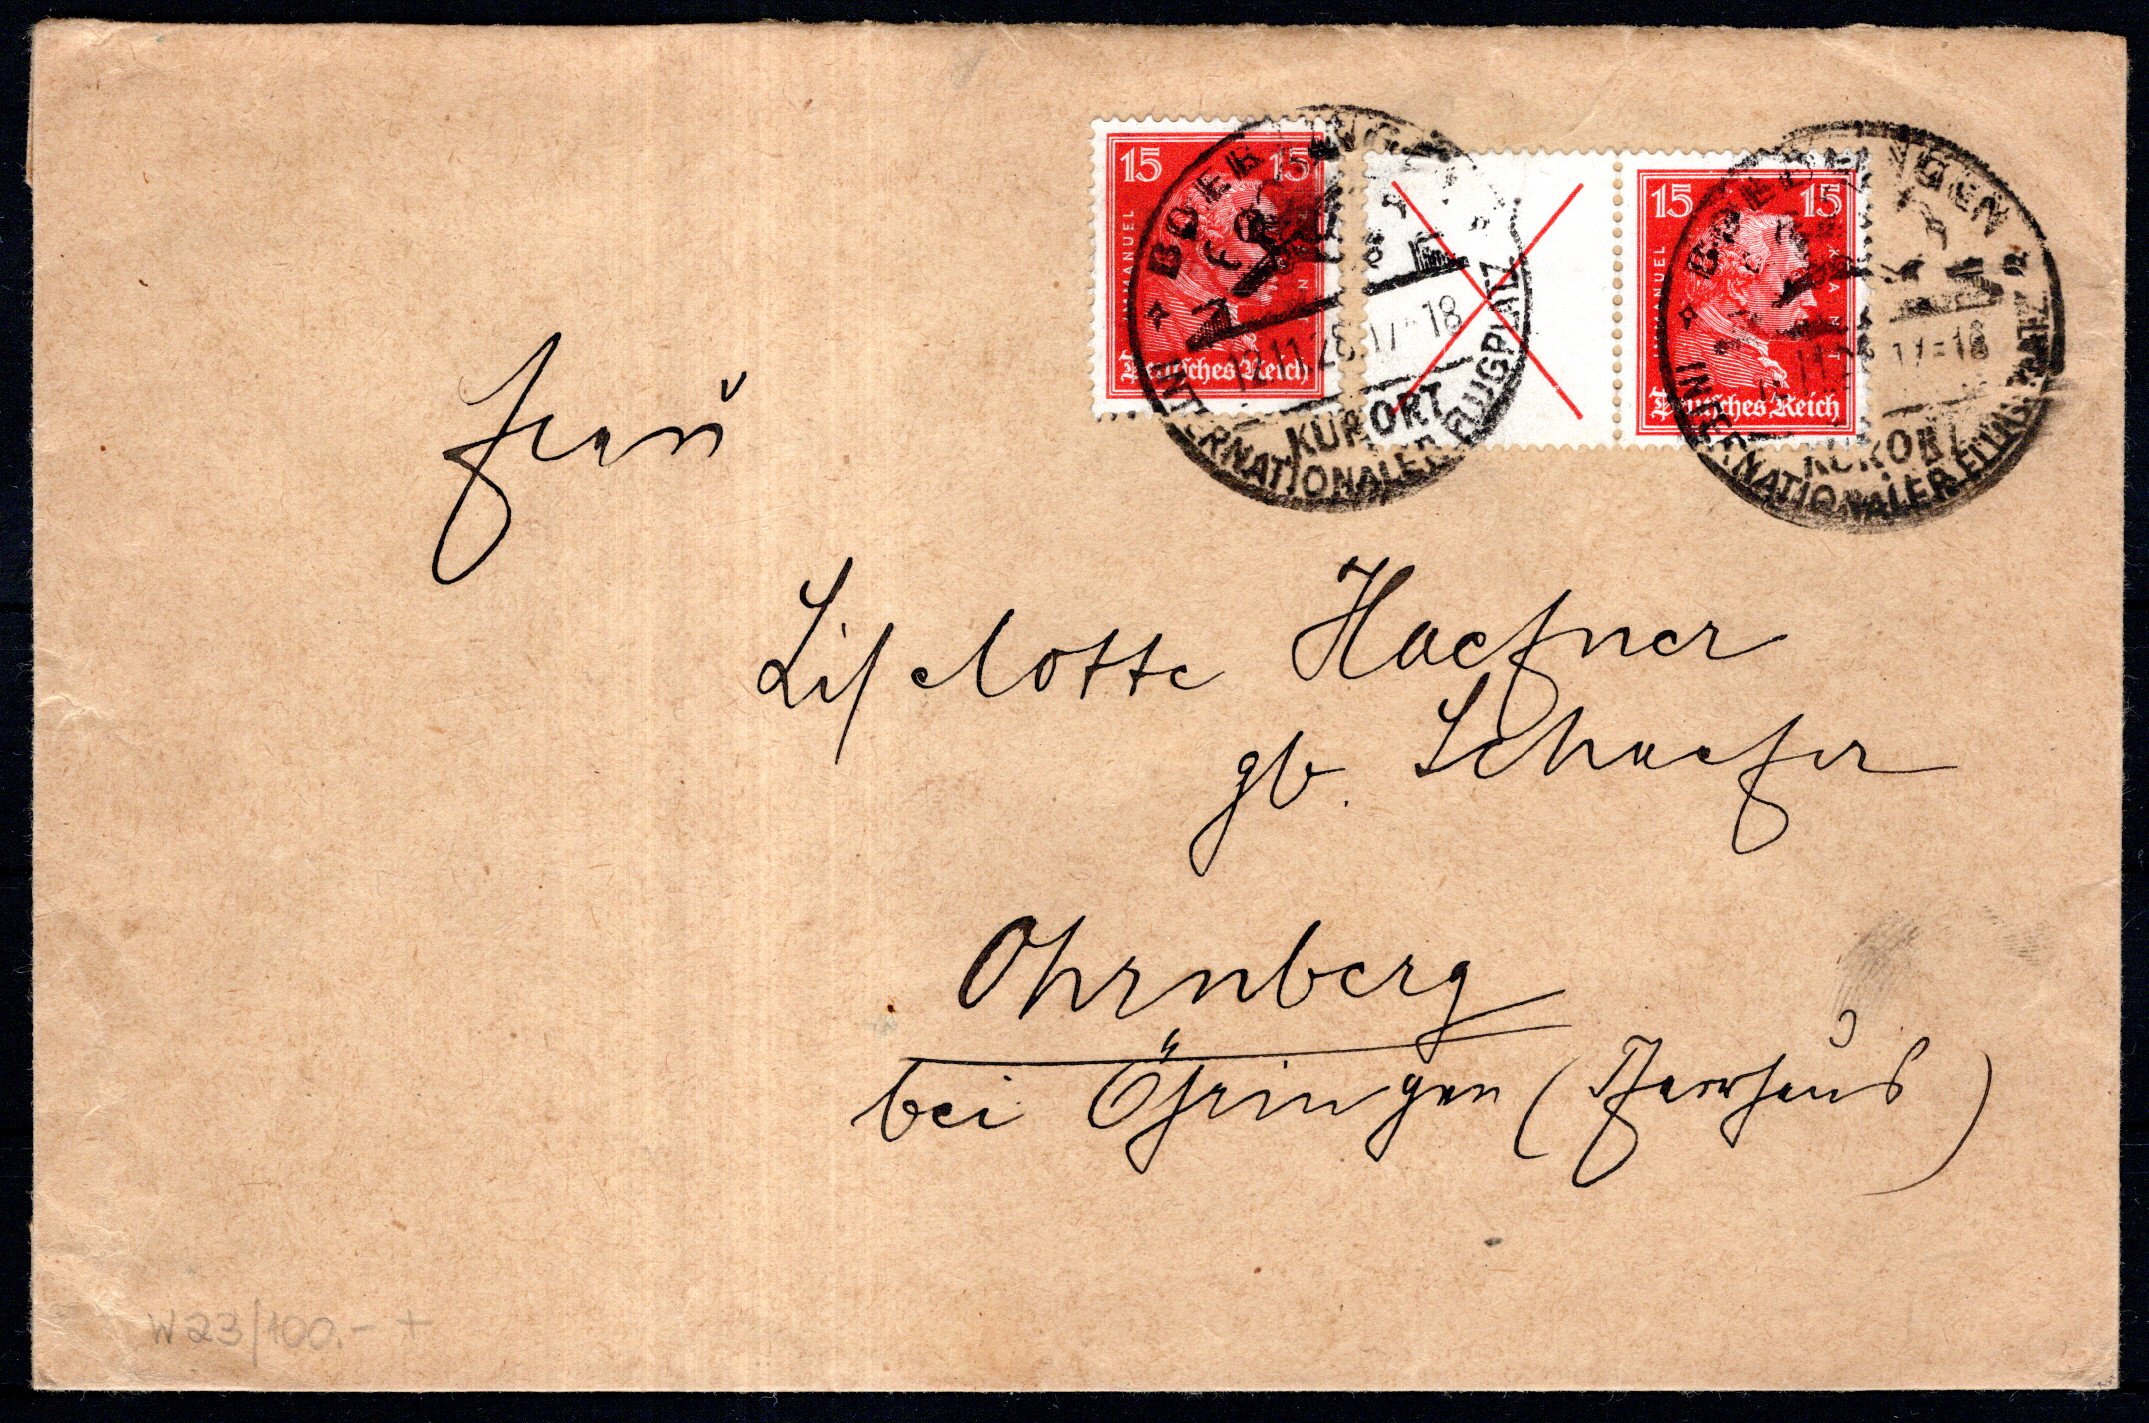 15 15
IMMANUEL KANT
Deutsches Reich
15 15
IMMANUEL KANT
Deutsches Reich
BOEBLINGEN
12.11.28.17-18
KURORT
INTERNATIONALER FLUGPLATZ
BOEBLINGEN
12.11.28.17-18
KURORT
INTERNATIONALER FLUGPLATZ
Frau
Liselotte Haefner
gb. Schaefer
Ohrnberg
bei Öhringen (Pfarrhaus)
W23/100.- +